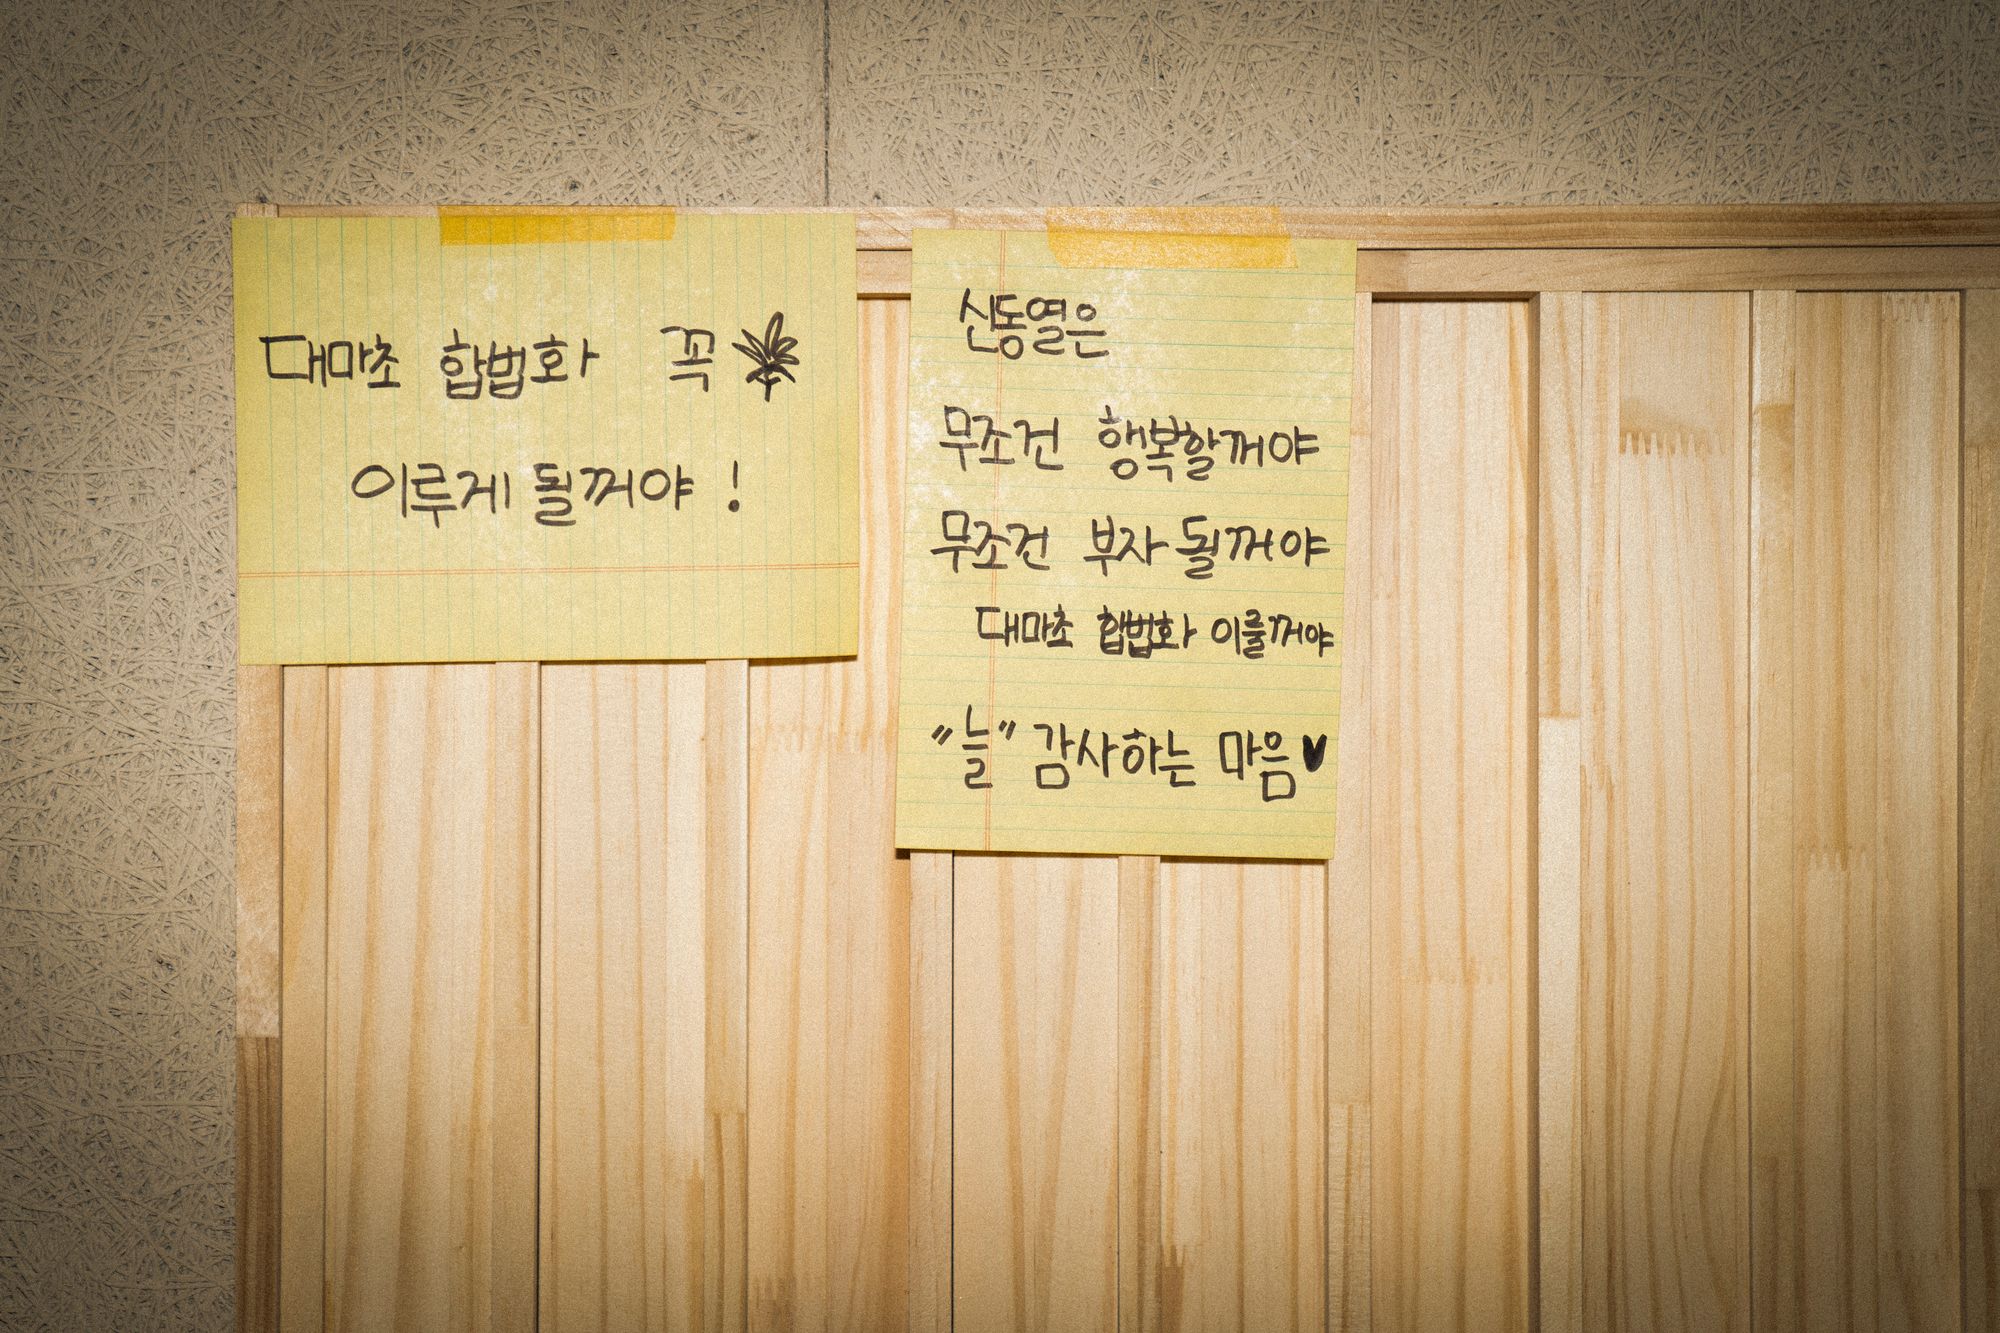 대마초 합법화 꼭
이루게 될꺼야 !
신동열은
무조건 행복할꺼야
무조건 부자 될꺼야
대마초 합법화 이룰꺼야
"늘" 감사하는 마음♥